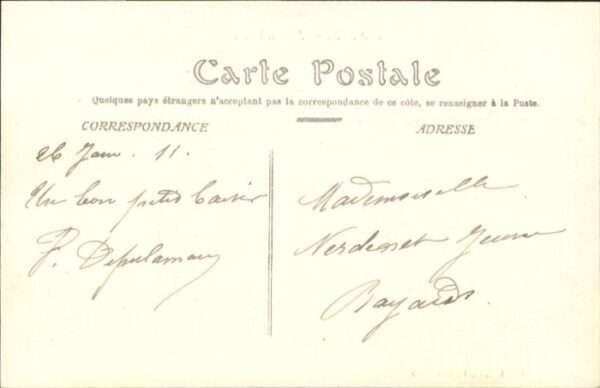 Carte Postale
Quelques pays étrangers n'acceptent pas la correspondance de ce côte, se renseigner à la Poste.
CORRESPONDANCE
26 Janv. 11.
Un bon petit baiser
P.
ADRESSE
Mademoiselle